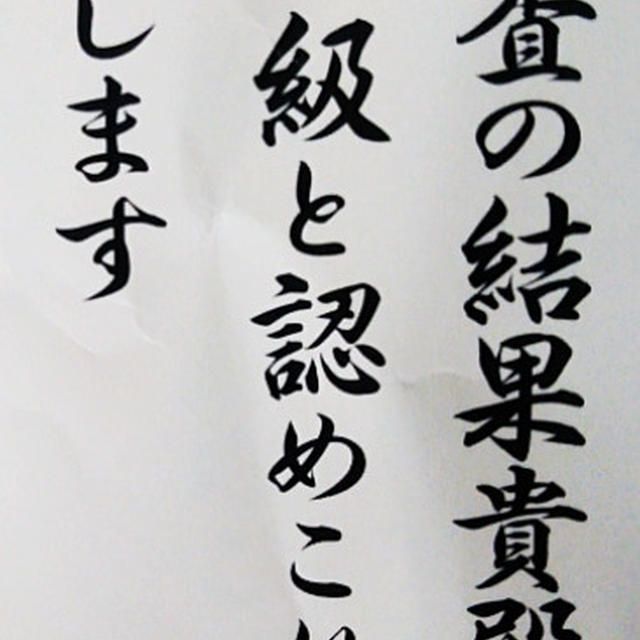 査の結果貴殿
級と認めこ
します